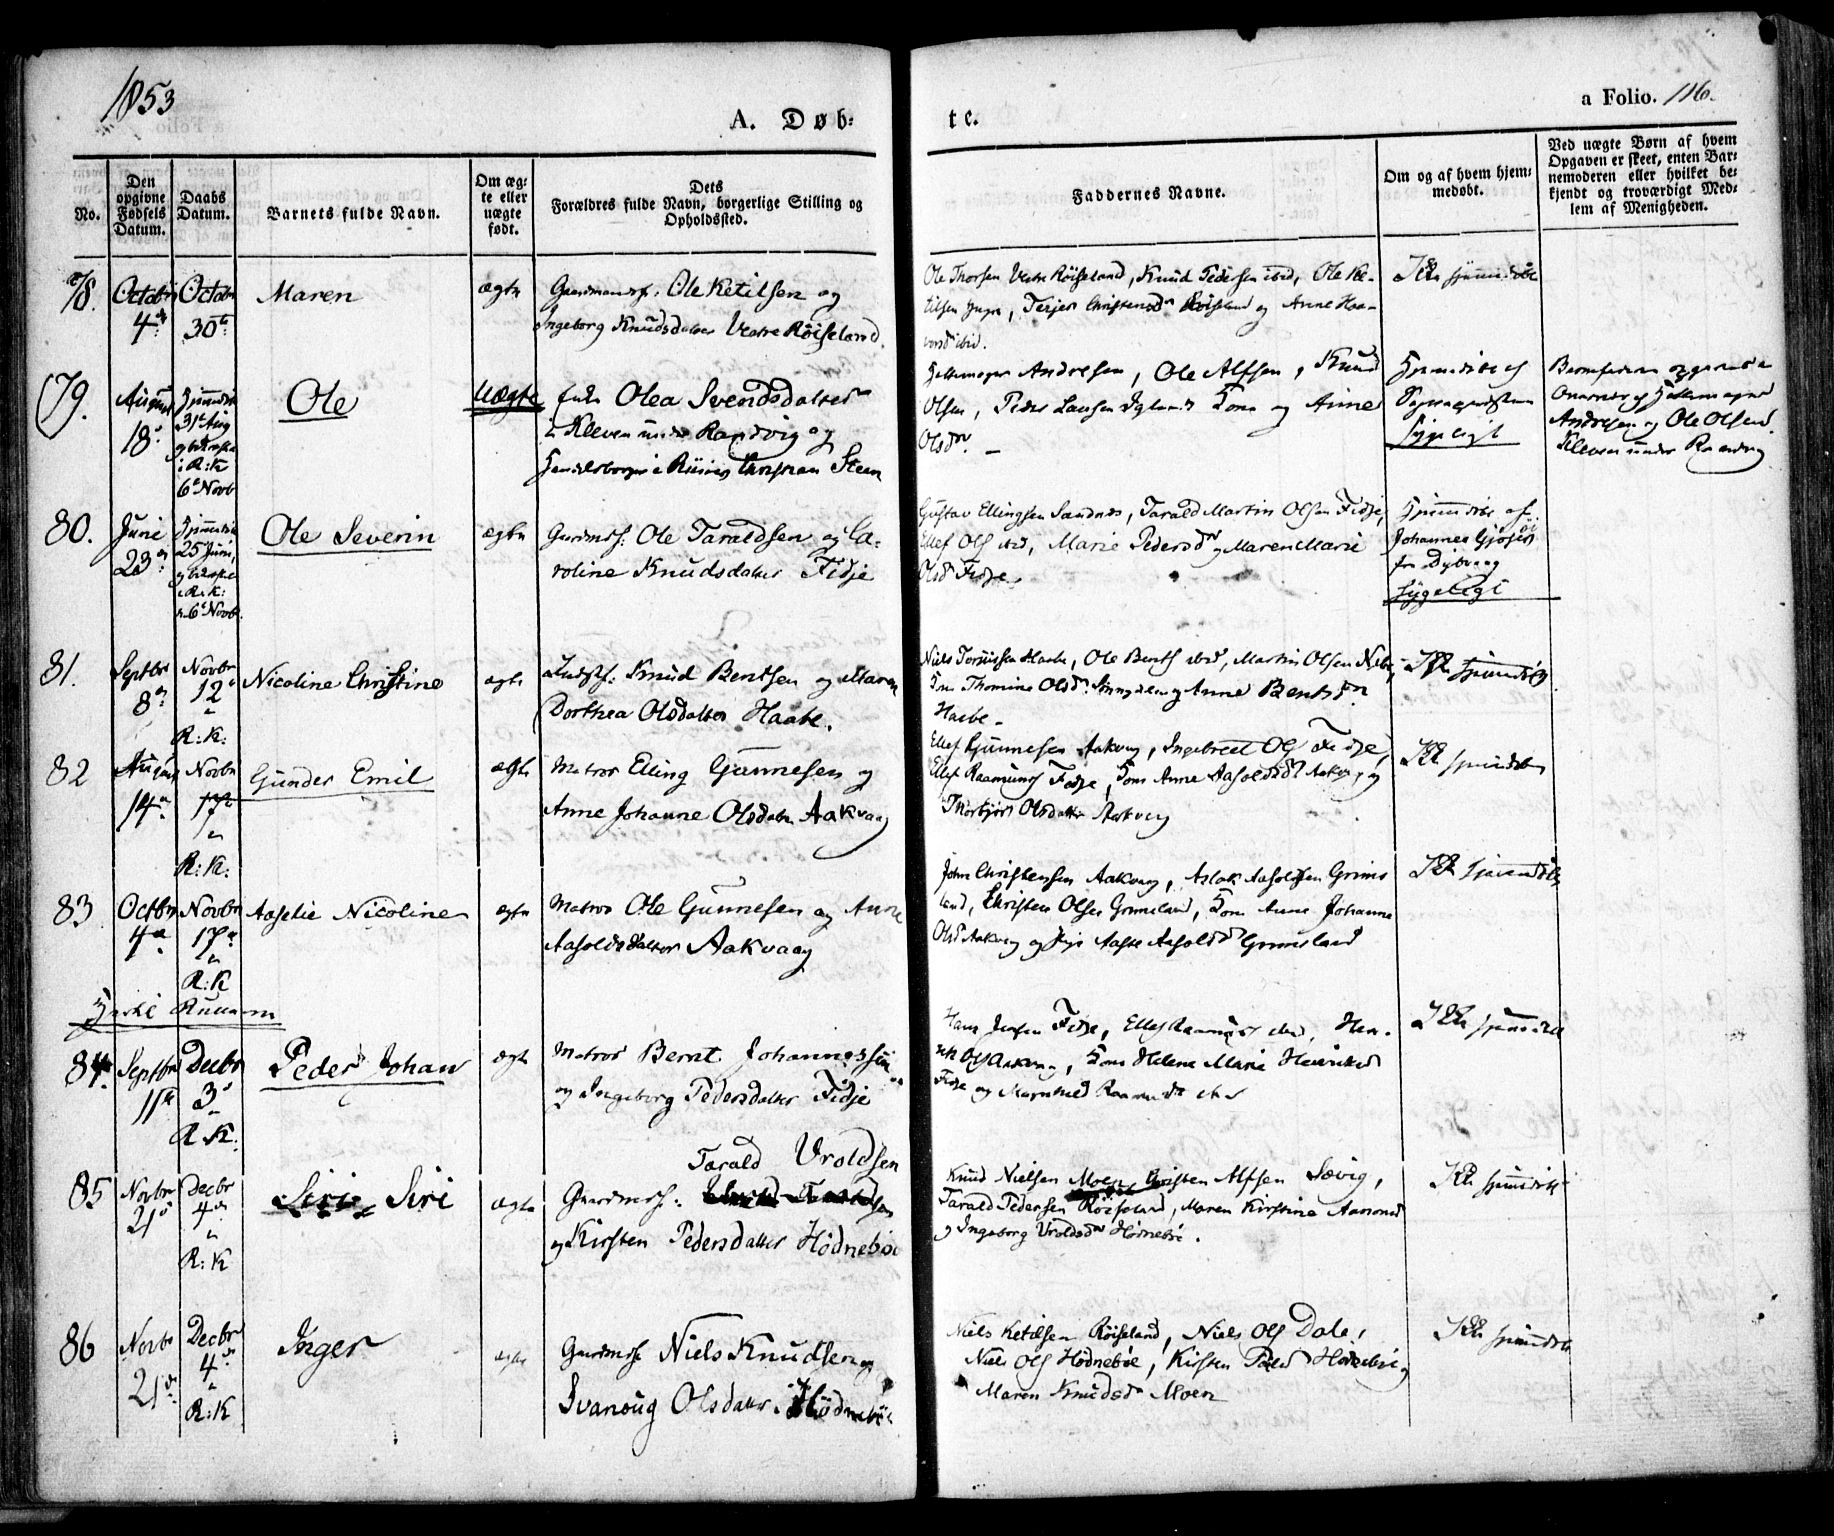 1853
A. Døb:
te.
a Folio. 116.
No.
Den opgivne Fødsels Datum.
Daabs Datum.
Barnets fulde Navn.
Om æg-
te eller
uægte
født.
Dets
Forældres fulde Navn, borgerlige Stilling og
Opholdssted.
Faddernes Navne.
Om og af hvem hjem-
medøbt.
Ved uægte Børn af hvem
Opgaven er skeet, enten Bar-
nemoderen eller hvilket be-
kjendt og troværdigt Med-
lem af Menigheden.
78.
Octobr
4de
Octobr
30te
Maren
ægte
Gaardmandsf: Ole Ketilsen og
Ingeborg Knudsdatter Vestre Röiseland.
Ole Thorsen Vestre Röiseland, Knud Pedersen ibid, Ole Ke-
tilsen yngre, Terjer Christensdr Röiseland og Anne Haa-
vorsd ibid.
Ikke hjemmedöbt
79.
August
18
Hjemmedöbt
31te Aug
i R:K
6te Novb
Ole
Uægte
Olea Svendsdatter
Kleven under Randvig og
i Risöer Christian Steen
Andresen, Ole Alfsen, Knud
Olsen, Peder Lausen Kone og Anne
Olsdr. –
Hjemmedöbt af
sygeligt
Barnefaderen opgivet
Andresen og Ole Olsen
Kleven under Randvig
80.
Juni
23
Hjemmedöbt
25 Juni,
R:K:
6te Novb.
Ole Severin
ægte
Gaardmsf: Ole Taraldsen og Ca-
roline Knudsdatter Fidje
Gustav Ellingsen Sandnes, Tarald Martin Olsen Fidje,
Ellef Ols ibid, Marie Pedersdr og Maren Marie
Olsd Fidje.
Hjemmedöbt af
Johannes
fra Dybvaag
sygeligt
81.
Septbr
8
Novbr
12
R:K:
Nicoline Christine
ægte
Indstf: Knud Bentsen og Maren
Dorthea Olsdatter Haabe.
Niels Haabe, Ole Bents ibid, Martin Olsen
Kone Thomine Olsdr og Anne Bentsdr
Haabe –
Ikke hjemmedöbt
82
August
14
Novbr
17
R:K:
Gunder Emil
ægte
Matros Elling Gunnesen og
Anne Johanne Olsdatter Aakvaag
Ellef Gunnesen Aakvaag, Ingebreet Ols Fidje,
Ellef Raamunds Fidje, Kone Anne Aasoldsdr Aakvaag og
Thorbjör Olsdatter Aakvaag
Ikke hjemmedöbt
83
Octbr
4
Novbr
17
R:K
Aaselie Nicoline
ægte
Matros Ole Gunnesen og Anne
Aasoldsdatter Aakvaag
John Christensen Aakvaag, Aslak Aasoldsen Grims
land, Christen Olsen Grimsland, Kone Anne Johanne
Olsd Aakvaag og Pige Aaste Aasoldsd Grimsland
Ikke hjemmedöbt
84.
Septbr
11te
Decbr
3
R.K.
Peder Johan
ægte
Matros Bernt Johannessen
og Ingeborg Pedersdatter Fidje
Hans Jensen Fidje, Ellef Raamunds ibid, Hen-
rik Ols Aakvaag, Kone Helene Marie Henriksd
Fidje og Raamundsdr ibid
Ikke hjemmedöbt
85
Novbr
21
Decbr
4de
R:K
Siri
ægte
Tarald Vroldsen
Gaardmsf:
og Kirsten Pedersdatter Hödneböe
Knud Nielsen Moen, Christen Alfsen Sævig,
Tarald Pedersen Röiseland, Maren Kirstine Aanonsd
og Ingeborg Vroldsdr Hödneböe.
Ikke hjemmedöbt
86
Novbr
21de
Decbr
4de
R:K
Inger
ægte
Gaardmsf Niels Knudsen og
Svanoug Olsdatter Hödneböe
Niels Ketilsen Röiseland, Niels Ols Dale,
Niels Ols Hödneböe, Kirsten Hödneböe og
Maren Knudsdr Moen
Ikke hjemmedöbt